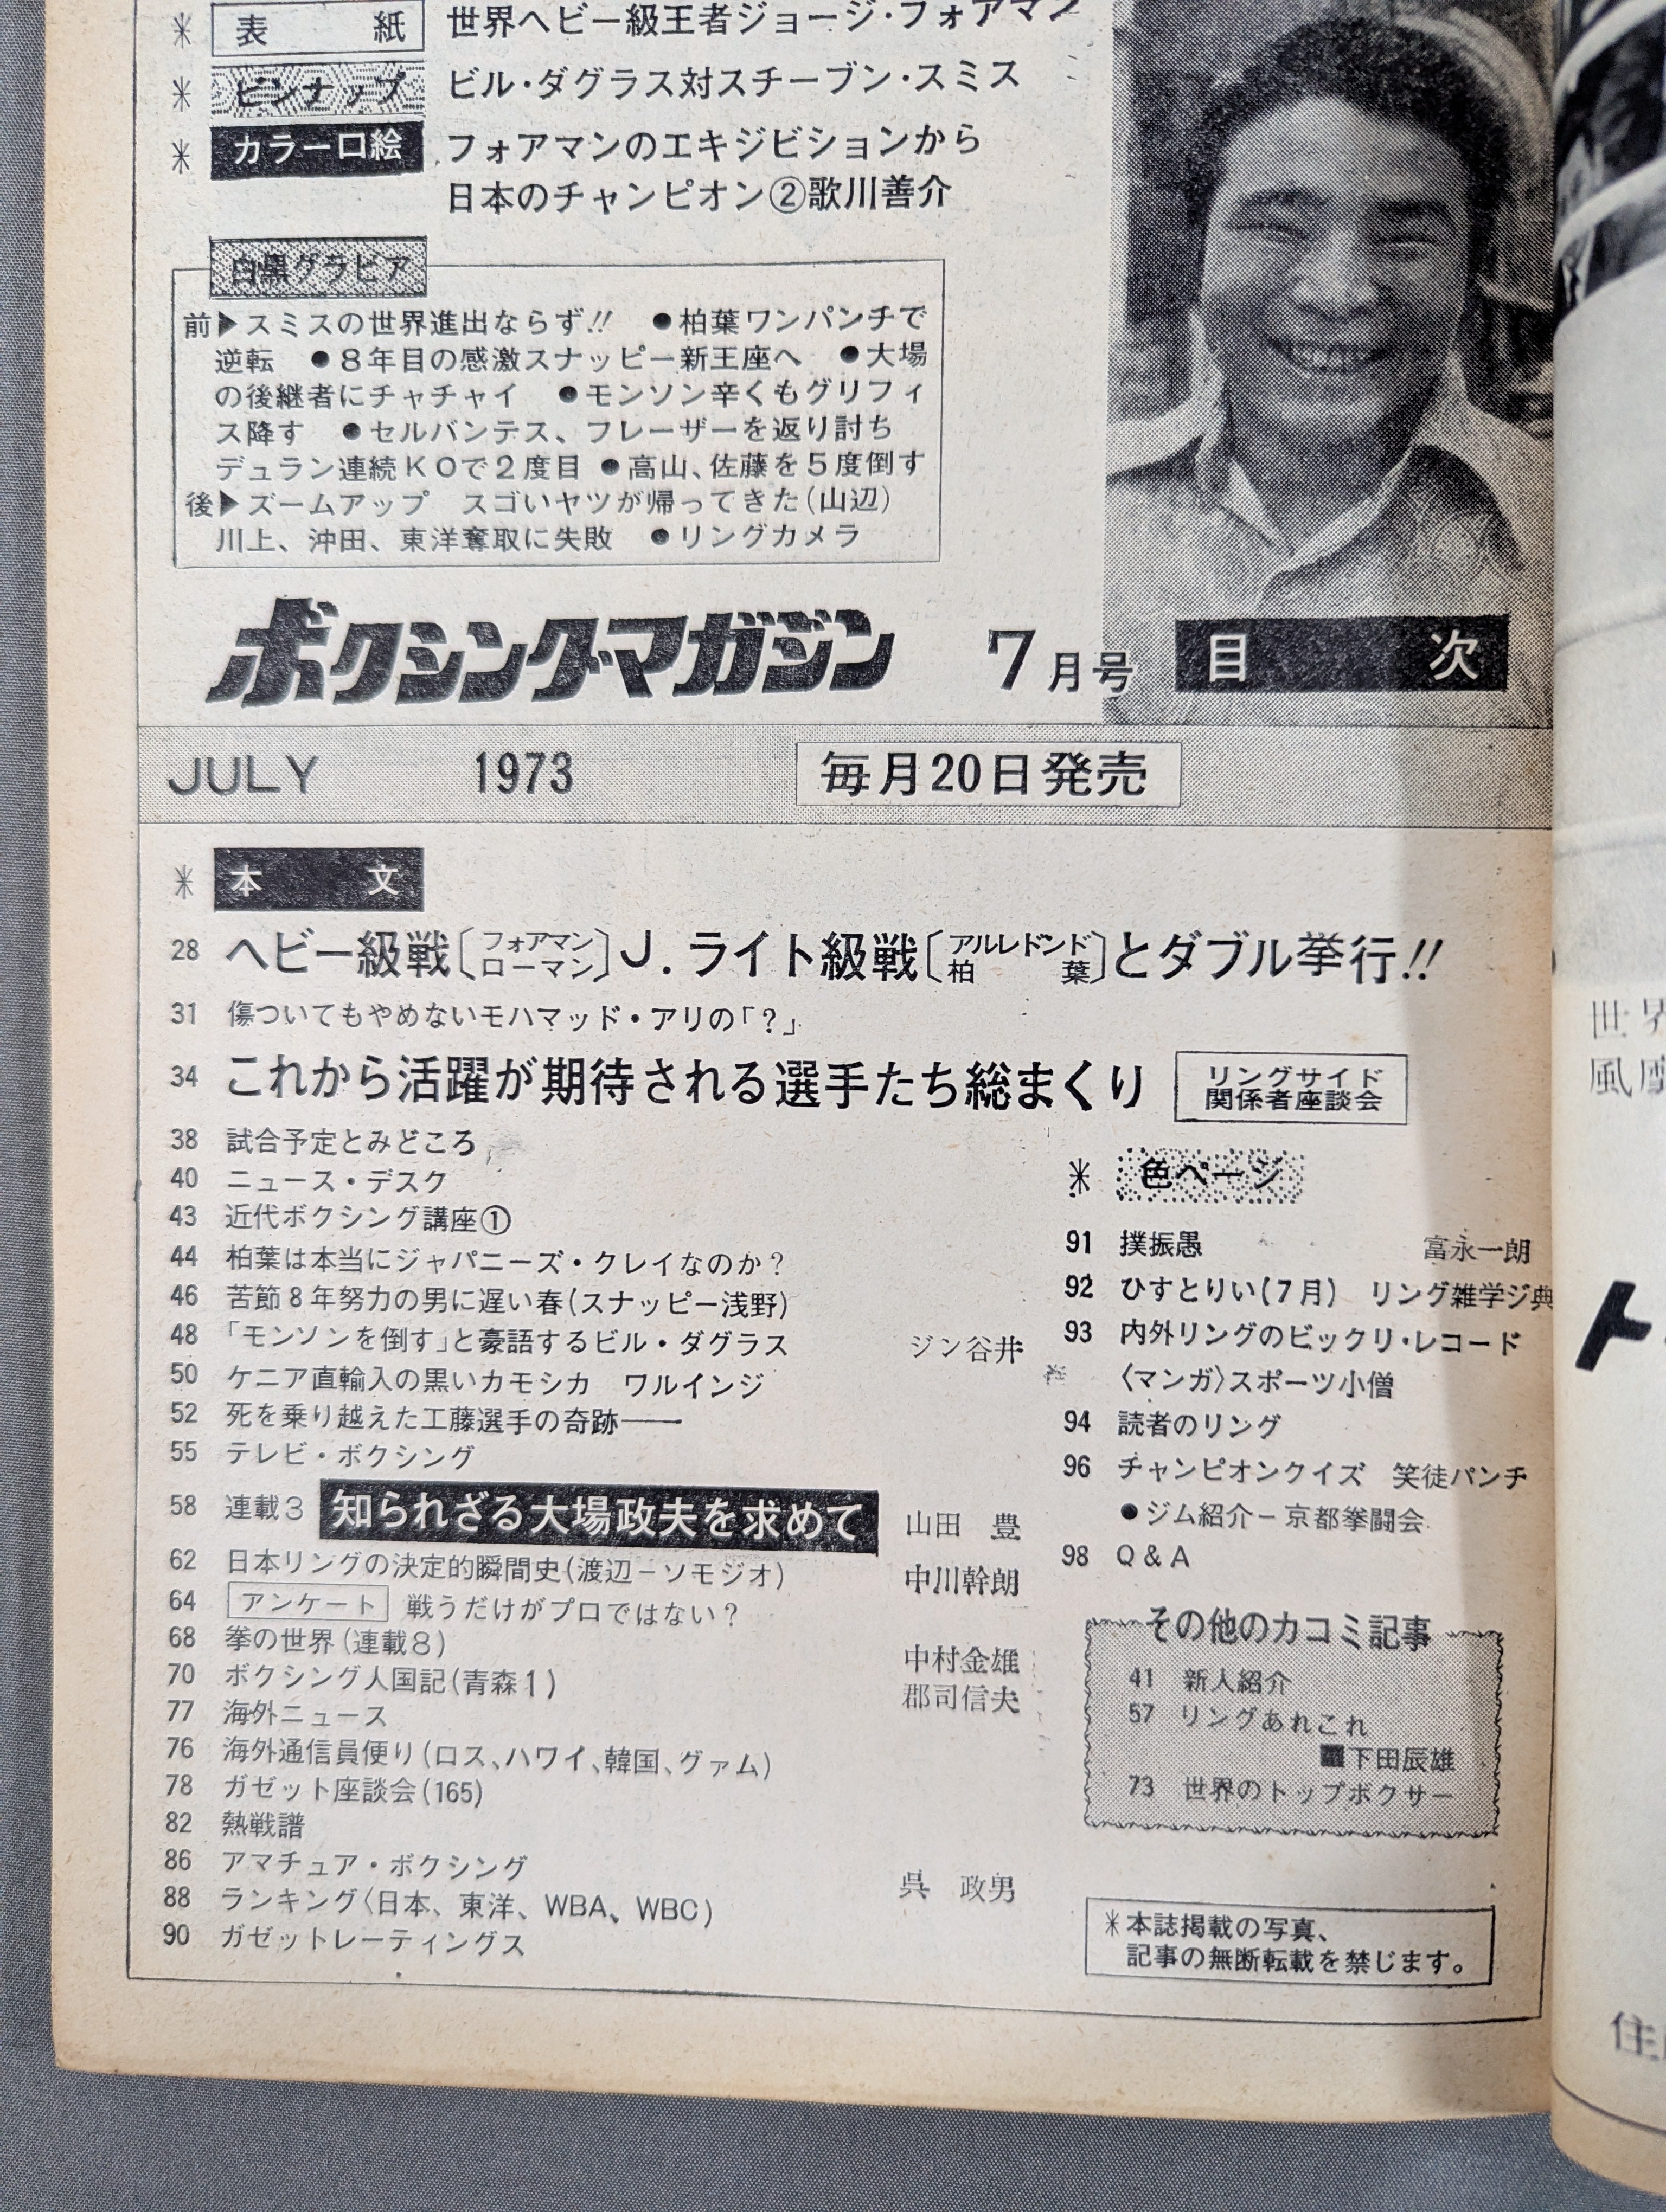 表紙 世界ヘビー級王者ジョージ・フォアマン
ピンナップ ビル・ダグラス対スチーブン・スミス
カラー口絵 フォアマンのエキジビションから
日本のチャンピオン②歌川善介
白黒グラビア
前▶スミスの世界進出ならず!! ●柏葉ワンパンチで
逆転 ●8年目の感激スナッピー新王座へ ●大場
の後継者にチャチャイ ●モンソン辛くもグリフィ
ス降す ●セルバンテス、フレーザーを返り討ち
デュラン連続KOで2度目 ●高山、佐藤を5度倒す
後▶ズームアップ スゴいヤツが帰ってきた(山辺)
川上、沖田、東洋奪取に失敗 ●リングカメラ
ボクシング・マガジン 7月号 目次
JULY 1973 毎月20日発売
本文
28 ヘビー級戦〔フォアマン ローマン〕J.ライト級戦〔アルレドンド 柏葉〕とダブル挙行!!
31 傷ついてもやめないモハマッド・アリの「?」
34 これから活躍が期待される選手たち総まくり リングサイド関係者座談会
38 試合予定とみどころ
40 ニュース・デスク
43 近代ボクシング講座①
44 柏葉は本当にジャパニーズ・クレイなのか?
46 苦節8年努力の男に遅い春(スナッピー浅野)
48 「モンソンを倒す」と豪語するビル・ダグラス ジン谷井
50 ケニア直輸入の黒いカモシカ ワルインジ
52 死を乗り越えた工藤選手の奇跡――
55 テレビ・ボクシング
58 連載3 知られざる大場政夫を求めて 山田 豊
62 日本リングの決定的瞬間史(渡辺－ソモジオ) 中川幹朗
64 アンケート 戦うだけがプロではない?
68 拳の世界(連載8) 中村金雄
70 ボクシング人国記(青森1) 郡司信夫
77 海外ニュース
76 海外通信員便り(ロス、ハワイ、韓国、グァム)
78 ガゼット座談会(165)
82 熱戦譜
86 アマチュア・ボクシング 呉 政男
88 ランキング〈日本、東洋、WBA、WBC)
90 ガゼットレーティングス
色ページ
91 撲振愚 富永一朗
92 ひすとりい(7月) リング雑学ジ典
93 内外リングのビックリ・レコード
〈マンガ〉スポーツ小僧
94 読者のリング
96 チャンピオンクイズ 笑徒パンチ
●ジム紹介－京都拳闘会
98 Q&A
その他のカコミ記事
41 新人紹介
57 リングあれこれ
■下田辰雄
73 世界のトップボクサー
＊本誌掲載の写真、
記事の無断転載を禁じます。
世界
風
ト
住